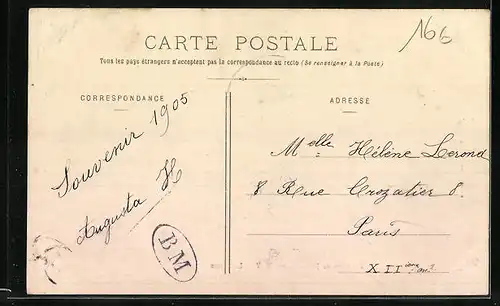 166
CARTE POSTALE
Tous les pays étrangers n'acceptent pas la correspondance au recto (Se renseigner à la Poste)
CORRESPONDANCE
Souvenir 1905
Augusta H
BM
ADRESSE
Melle Hélène Lerond
8 Rue Crozatier 8.
Paris
XII